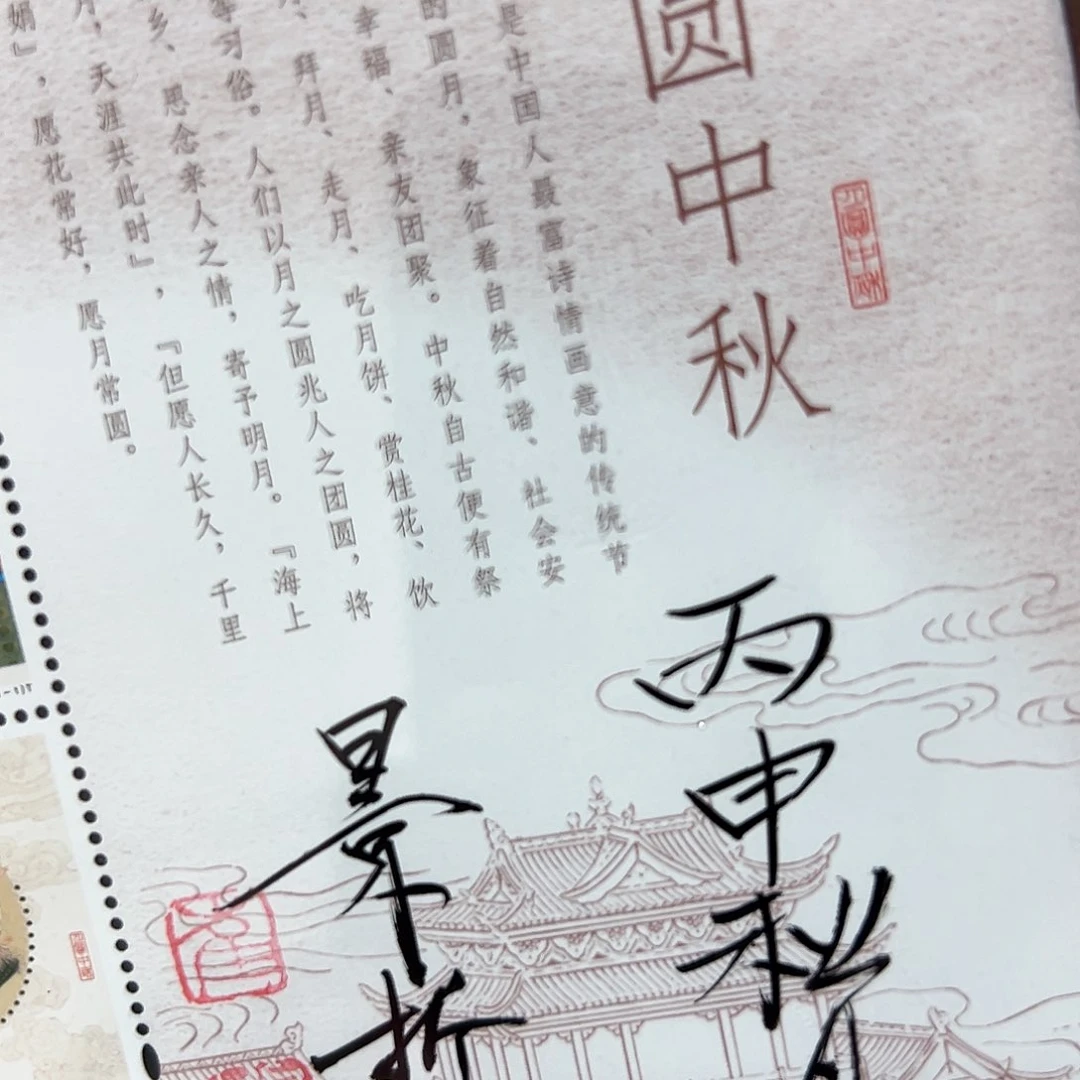 圆中秋
月圆中秋
是中国人最富诗情画意的传统节
的圆月，象征着自然和谐、社会安
幸福、亲友团聚。中秋自古便有祭
、拜月、走月、吃月饼、赏桂花、饮
等习俗。人们以月之圆兆人之团圆，将
乡、思念亲人之情，寄予明月。『海上
月，天涯共此时』，『但愿人长久，千里
娟』，愿花常好，愿月常圆。
丙申秋月
景